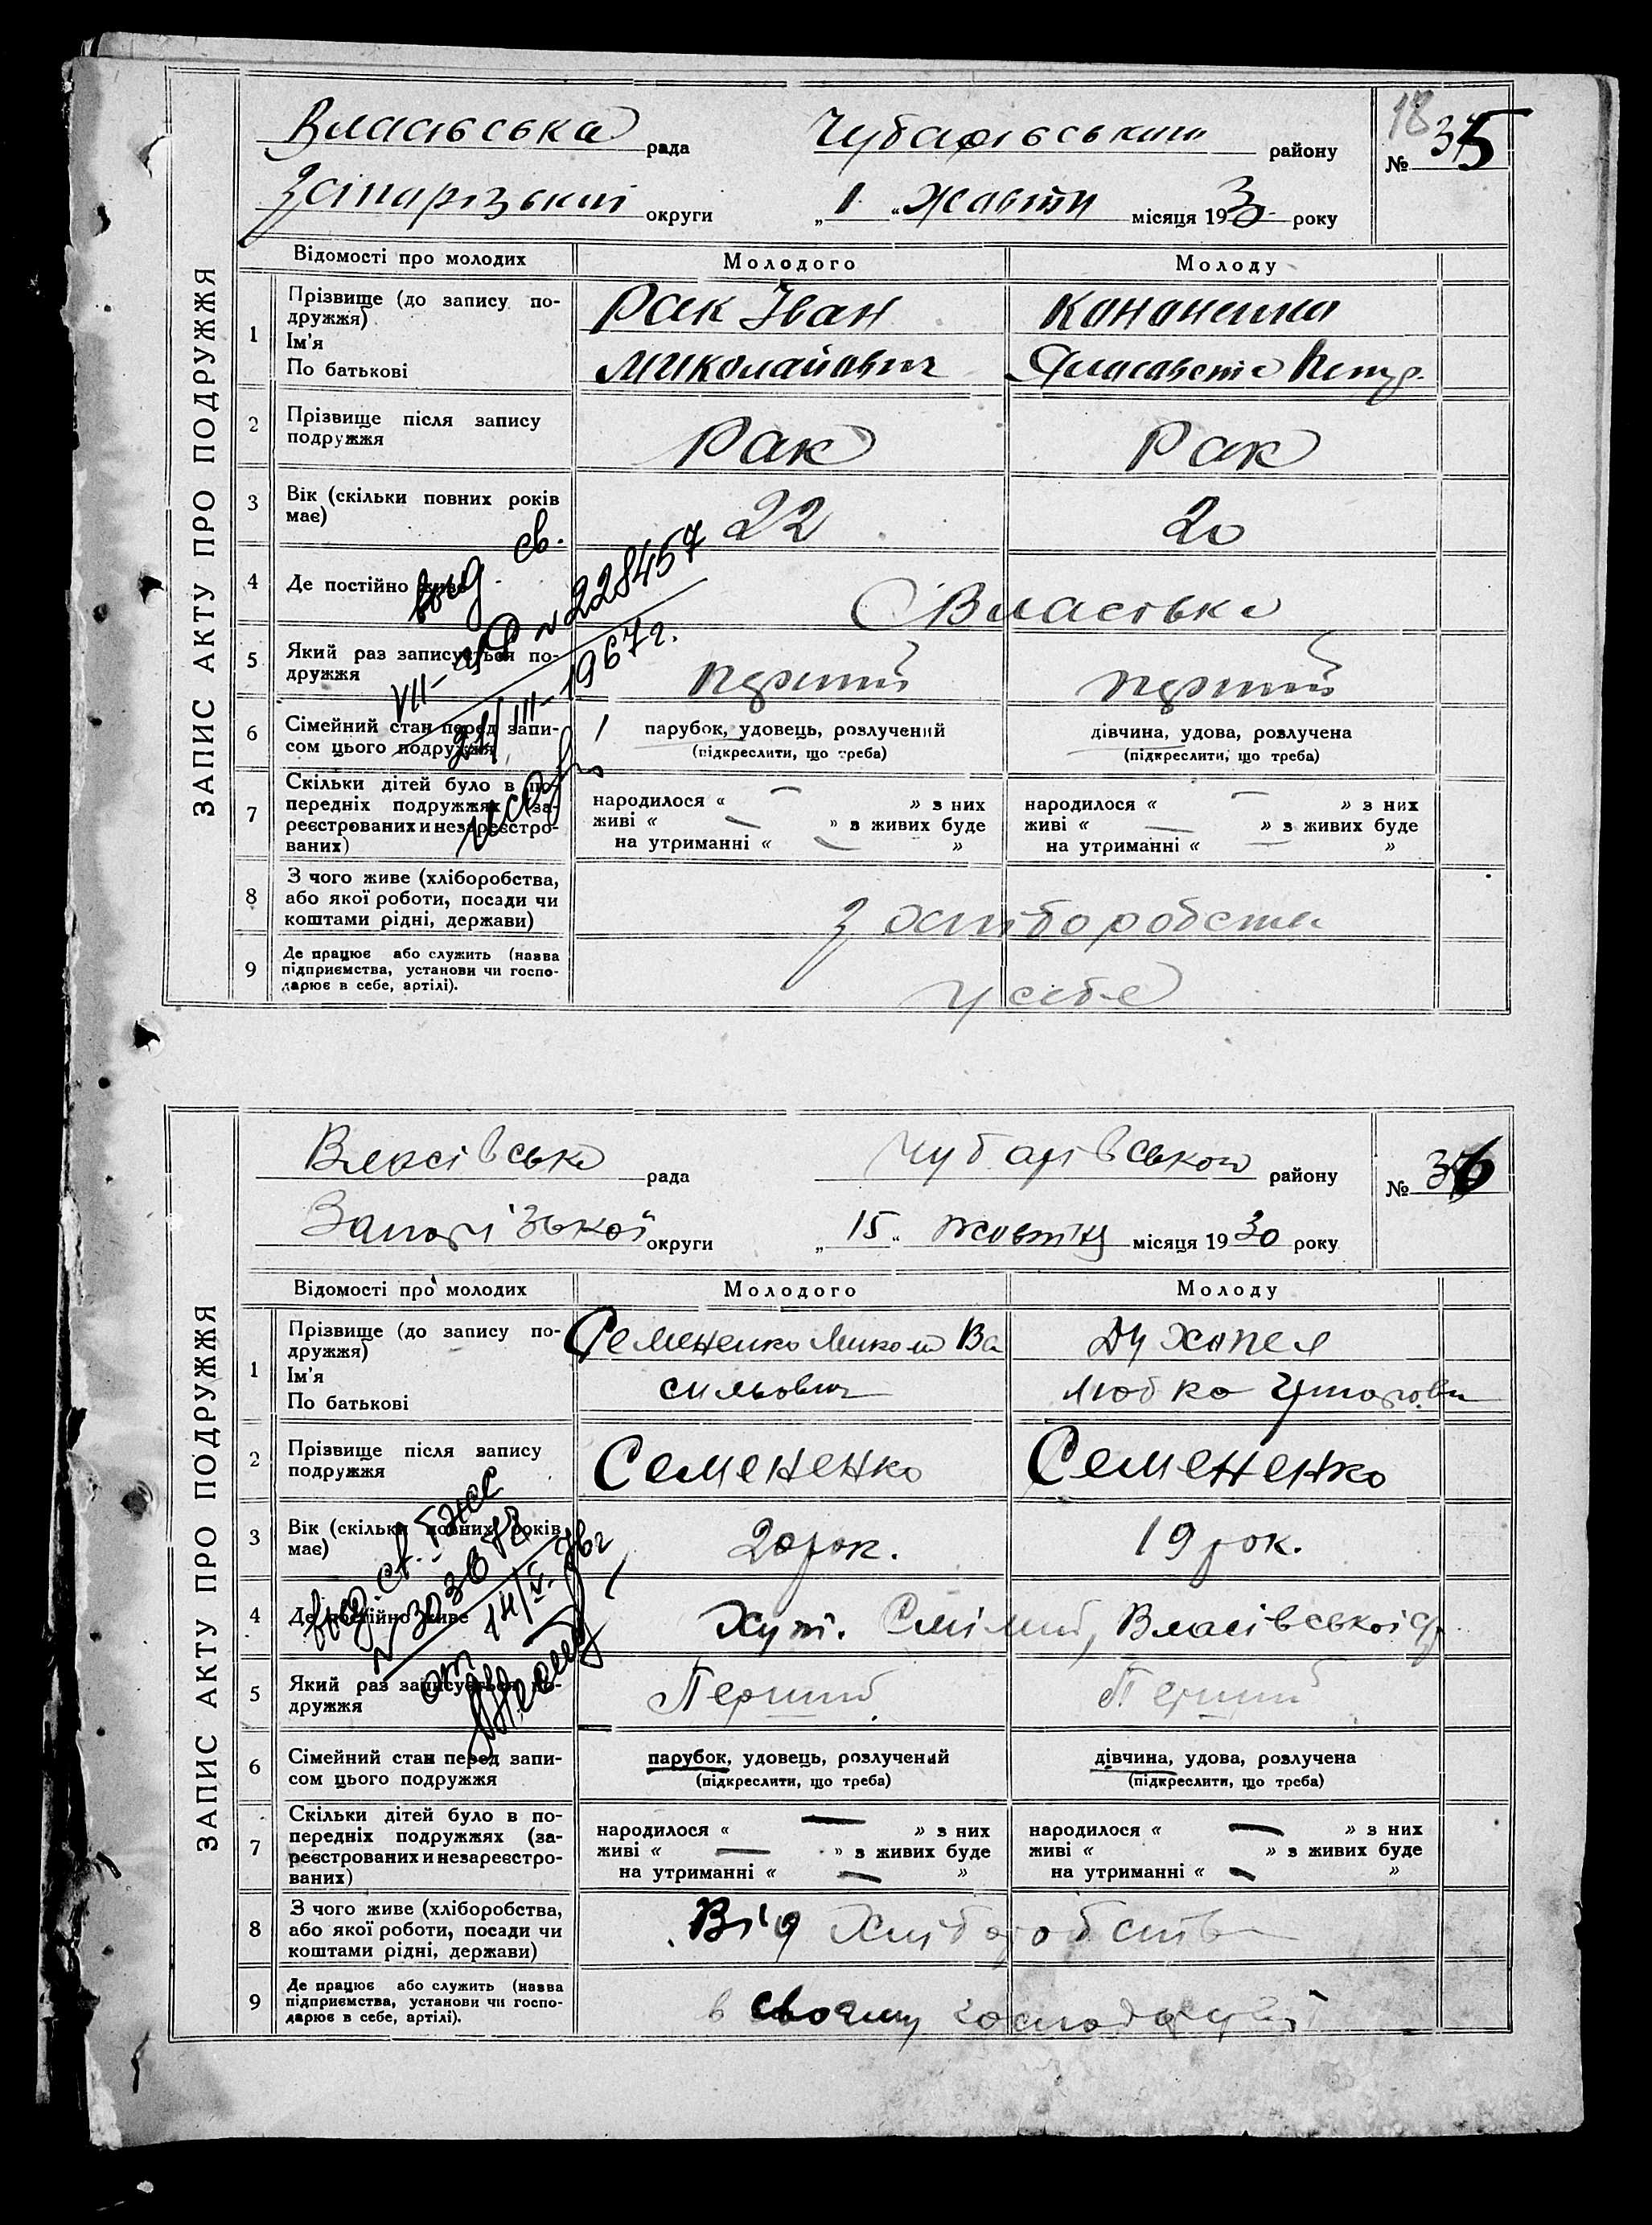 ЗАПИС АКТУ ПРО ПОДРУЖЖЯ
Власівська рада Чубарівський району
18
№ 35
Запарізький округи „1“ Жовтн місяця 1930 року
Відомості про молодих Молодого Молоду
1 Прізвище (до запису подружжя) Рак Іван Кононенко
Ім'я
По батькові Миколайович Єлисавета Петр.
2 Прізвище після запису подружжя Рак Рак
3 Вік (скільки повних років має) 22 20
4 Де постійно живе С Власівка
5 Який раз записується подружжя перший перший
6 Сімейний стан перед записом цього подружжя парубок, удовець, розлучений дівчина, удова, розлучена
(підкреслити, що треба) (підкреслити, що треба)
7 Скільки дітей було в попередніх подружжях (зареєстрованих и незареєстрованих) народилося « — » з них народилося « — » з них
живі « — » з живих буде живі « — » з живих буде
на утриманні « — » на утриманні « — »
8 З чого живе (хліборобства, або якої роботи, посади чи коштами рідні, держави) З хліборобства
9 Де працює або служить (назва підприємства, установи чи господарює в себе, артілі). у себе
выд. св.
№ 228457
1967 г.
ЗАПИС АКТУ ПРО ПОДРУЖЖЯ
Власівська рада Чубарівського району
№ 36
Запорізької округи „15“ Жовтня місяця 1930 року
Відомості про молодих Молодого Молоду
1 Прізвище (до запису подружжя) Семененко Микола Ва
Ім'я
По батькові сильович Любка
2 Прізвище після запису подружжя Семененко Семененко
3 Вік (скільки повних років має) 20 рок. 19 рок.
4 Де постійно живе Хут. Власівської с/р
5 Який раз записується подружжя Перший Перший
6 Сімейний стан перед записом цього подружжя парубок, удовець, розлучений дівчина, удова, розлучена
(підкреслити, що треба) (підкреслити, що треба)
7 Скільки дітей було в попередніх подружжях (зареєстрованих и незареєстрованих) народилося « — » з них народилося « — » з них
живі « — » з живих буде живі « » з живих буде
на утриманні « — » на утриманні « — »
8 З чого живе (хліборобства, або якої роботи, посади чи коштами рідні, держави) Від хліборобства
9 Де працює або служить (назва підприємства, установи чи господарює в себе, артілі). в своему господарстві
выд. св.
от 14/V